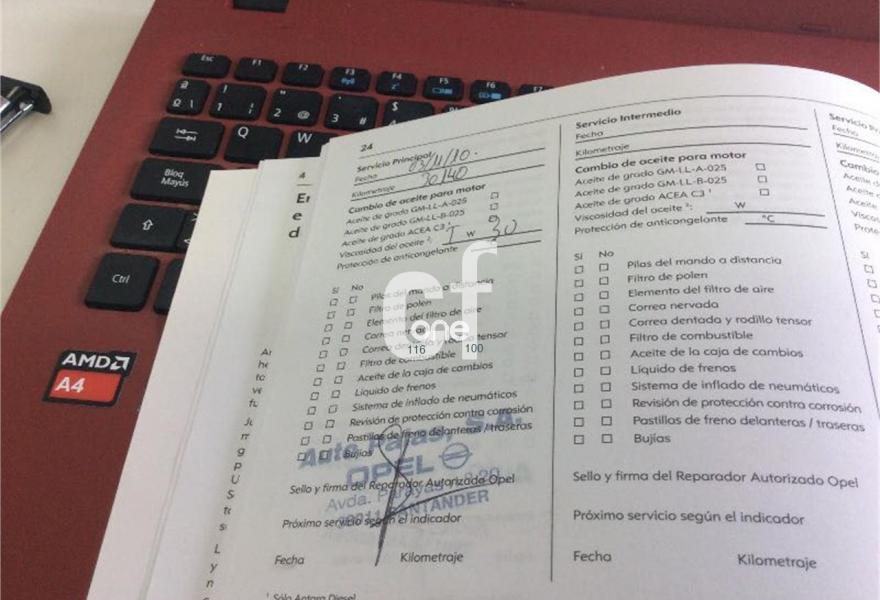 Esc
F1
F2
F3
F4
F5
F6
F7
Q
W
Bloq
Mayús
Ctrl
AMD
A4
24
Servicio Principal
Fecha 03/11/10.
Kilometraje 30140
Cambio de aceite para motor
Aceite de grado GM-LL-A-025
Aceite de grado GM-LL-B-025
Aceite de grado ACEA C3 ¹
Viscosidad del aceite ²: W 30
Protección de anticongelante
Sí No
Pilas del mando a distancia
Filtro de polen
Elemento del filtro de aire
Correa nervada
Correa dentada y rodillo tensor
Filtro de combustible
Aceite de la caja de cambios
Líquido de frenos
Sistema de inflado de neumáticos
Revisión de protección contra corrosión
Pastillas de freno delanteras / traseras
Bujías
Sello y firma del Reparador Autorizado Opel
Próximo servicio según el indicador
Fecha Kilometraje
¹ Sólo Antara Diesel
Auto Palas, S.A.
OPEL
Avda. Parayas
39011 SANTANDER
Servicio Intermedio
Fecha
Kilometraje
Cambio de aceite para motor
Aceite de grado GM-LL-A-025
Aceite de grado GM-LL-B-025
Aceite de grado ACEA C3 ¹
Viscosidad del aceite ²: W
Protección de anticongelante °C
Sí No
Pilas del mando a distancia
Filtro de polen
Elemento del filtro de aire
Correa nervada
Correa dentada y rodillo tensor
Filtro de combustible
Aceite de la caja de cambios
Líquido de frenos
Sistema de inflado de neumáticos
Revisión de protección contra corrosión
Pastillas de freno delanteras / traseras
Bujías
Sello y firma del Reparador Autorizado Opel
Próximo servicio según el indicador
Fecha Kilometraje
cf
one
116 100